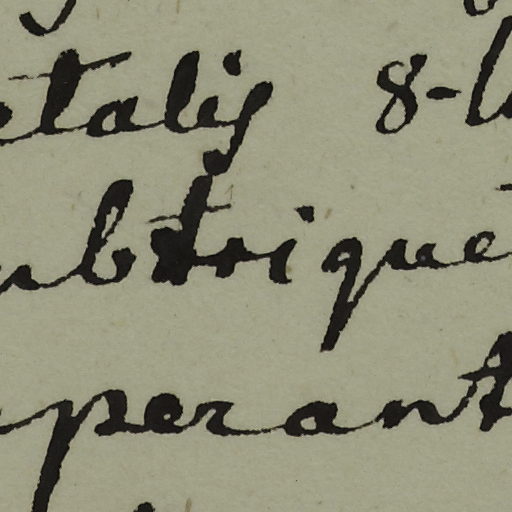 etalis 8-l
ubtrique
perant